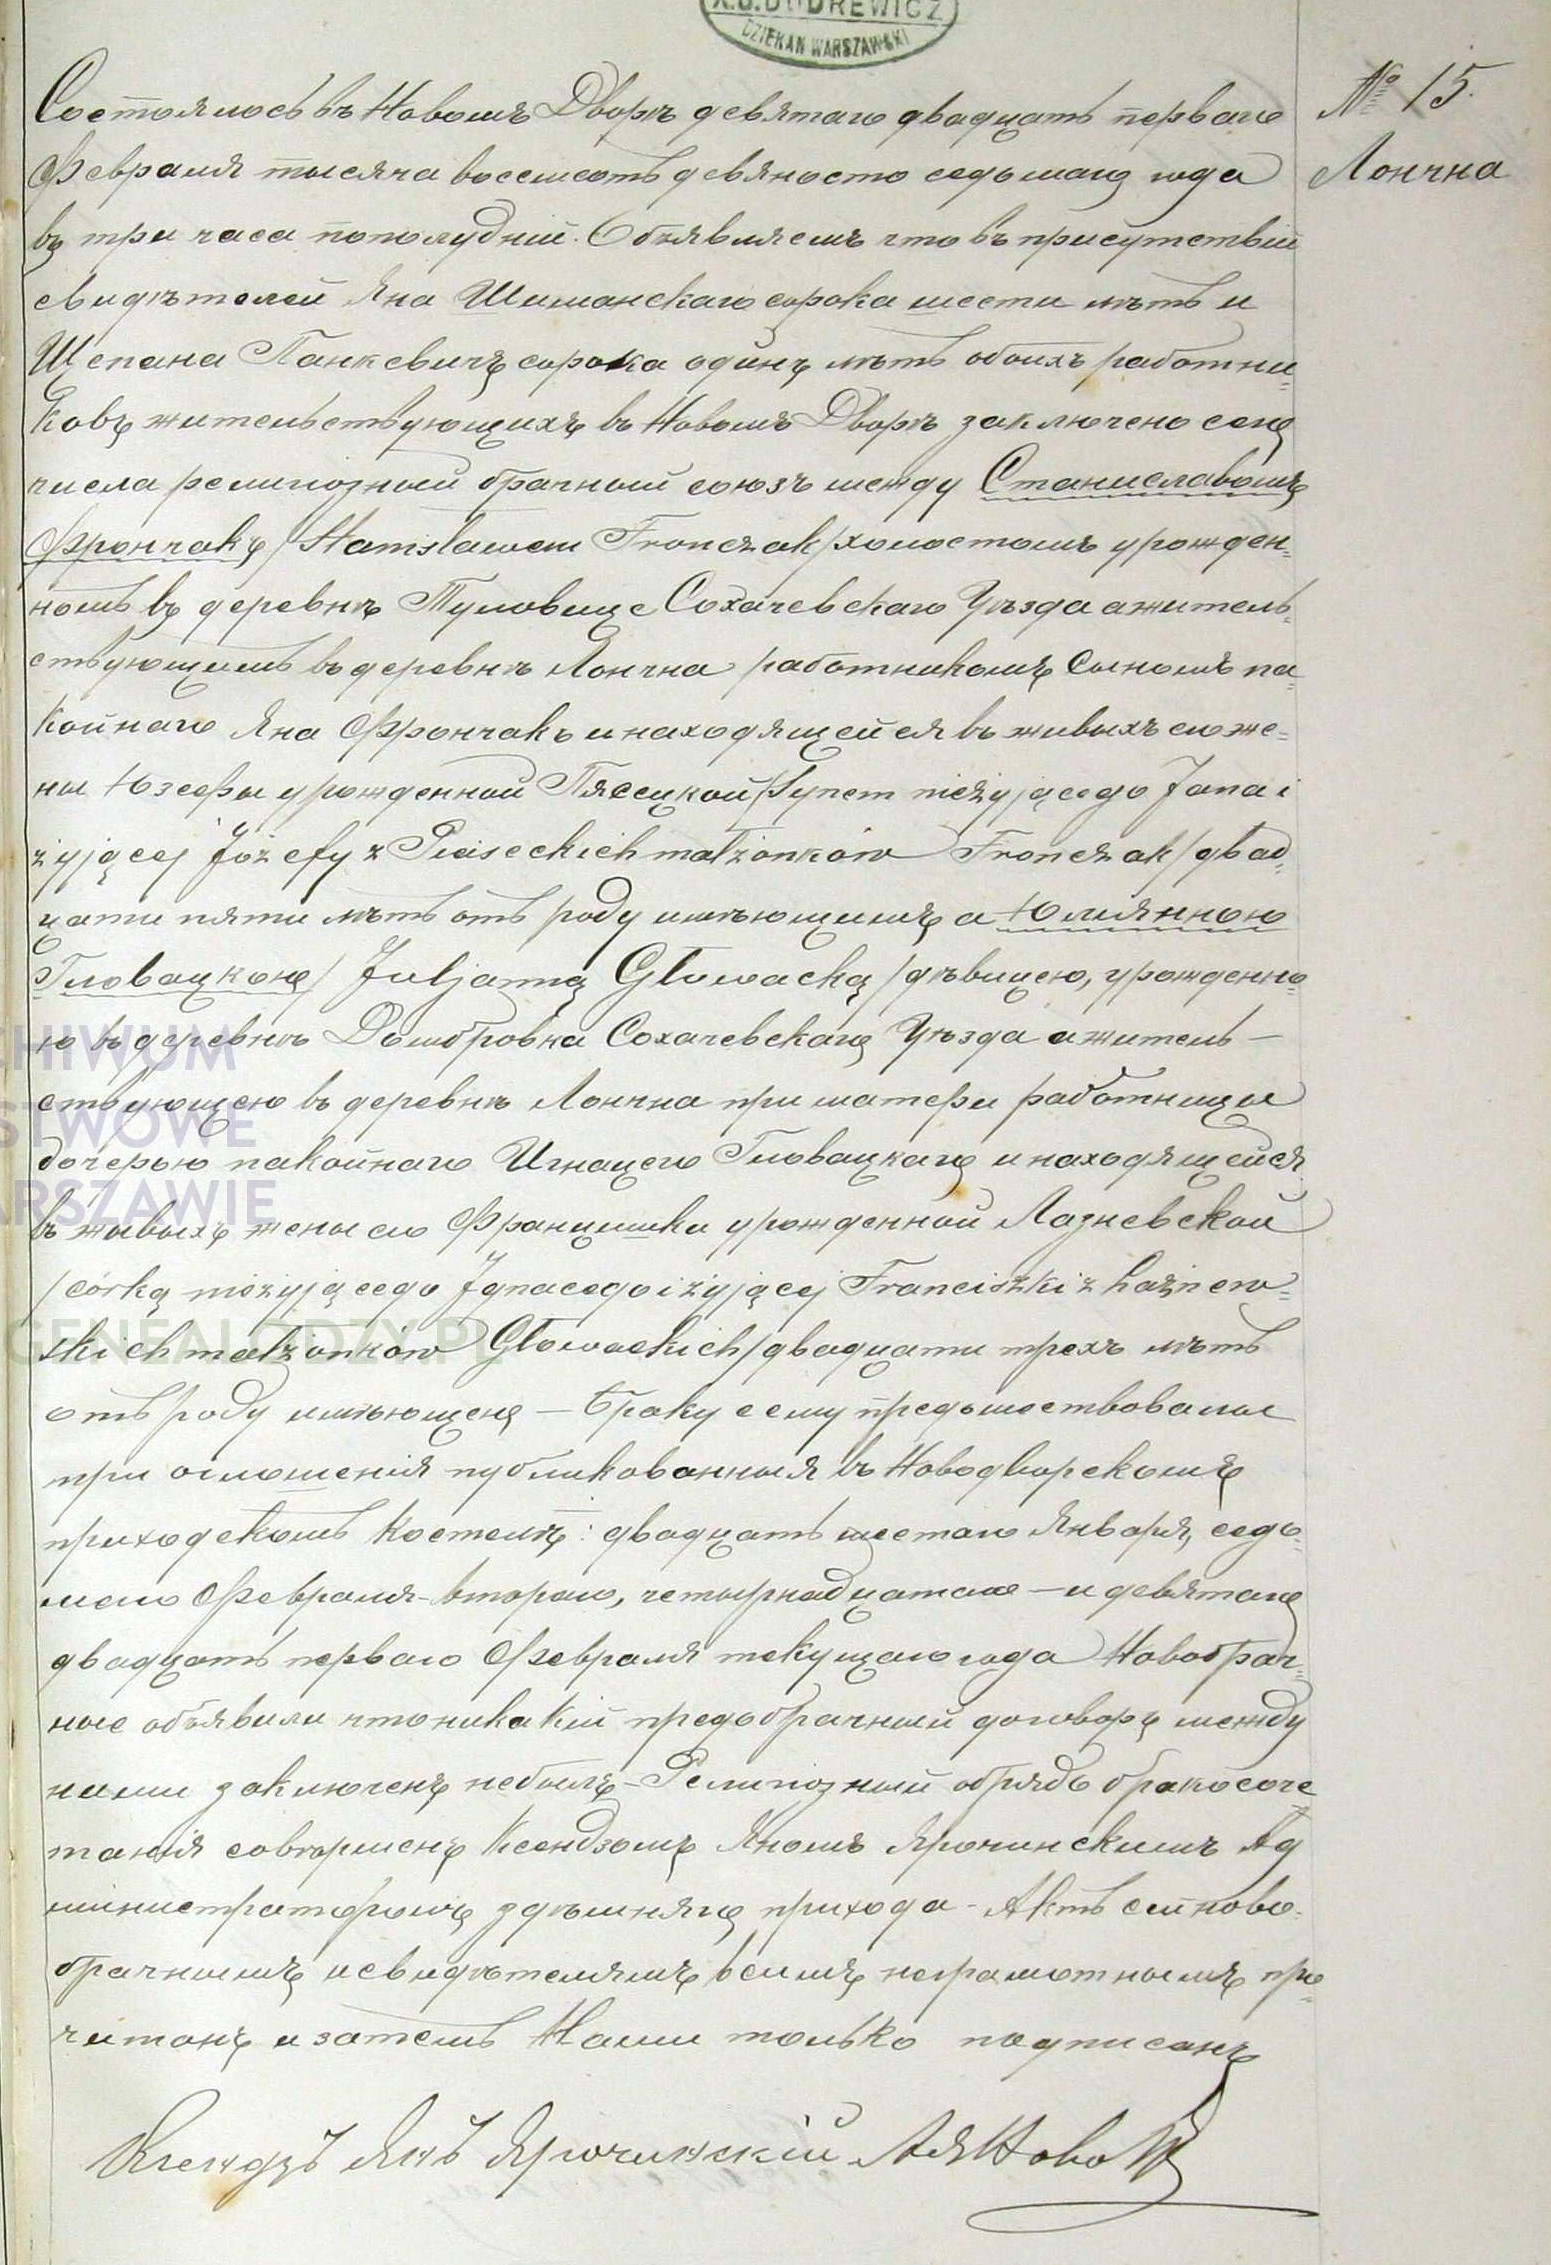 X.S.DUDREWICZ
DZIEKAN WARSZAWSKI
№ 15.
Лончна
Состоялось въ Новомъ Дворѣ девятаго двадцать перваго
Февраля тысяча восемсотъ девяносто седьмаго года
въ три часа пополудній. Объявляемъ что въ присутствіи
свидѣтелей Яна Шиманскаго сорока шести лѣтъ и
Щепана Панкевичъ сорока одинъ лѣтъ обоихъ работни-
ковъ жительствующихъ въ Новомъ Дворѣ заключено сего
числа религіозный брачный союзъ между Станиславомъ
Фрончакъ /Stanisławem Fronczak/ холостомъ урожден-
номъ въ деревнѣ Туловице Сохачевскаго Уѣзда а житель-
ствующимъ въ деревнѣ Лончна работникомъ Сыномъ па-
койнаго Яна Фрончакъ и находящейся въ живыхъ его же-
ны Юзефы урожденной Пясецкой /Synem nieżyjącego Jana i
żyjącej Józefy z Piaseckich małżonków Fronczak/ двад-
цати пяти лѣтъ отъ роду имѣющимъ а Юліянною
Гловацкою /Juljanną Głowacką/ дѣвицею, урожденно-
ю въ деревнѣ Домбровка Сохачевскаго Уѣзда а житель-
ствующею въ деревнѣ Лончна при матери работницы
дочерью пакойнаго Игнацего Гловацкаго и находящейся
въ живыхъ жены его Францишки урожденной Лазневской
/córką nieżyjącego Ignacego i żyjącej Franciszki z Łaźniew-
skich małżonków Głowackich/ двадцати трехъ лѣтъ
отъ роду имѣющею — Браку сему предшествовали
при оглошенія публикованныя въ Новодворскомъ
приходскомъ костелѣ: двадцать шестаго Января, седь-
маго Февраля - втораго, четырнадцатаго — и девятаго
двадцать перваго Февраля текущаго года Новобрач-
ные объявили что никакій предбрачный договоръ между
ними заключенъ небылъ - Религіозный обрядъ бракосоче
танія совершенъ Ксендзомъ Яномъ Ярочинскимъ Ад
министраторомъ здѣшняго прихода - Актъ сей ново-
брачнымъ и свидѣтелямъ всимъ неграмотнымъ про-
читанъ и затемъ Нами только подписанъ
Ксендзъ Янъ Ярочинскій
ARCHIWUM
PAŃSTWOWE
W WARSZAWIE
GENEALODZY.PL